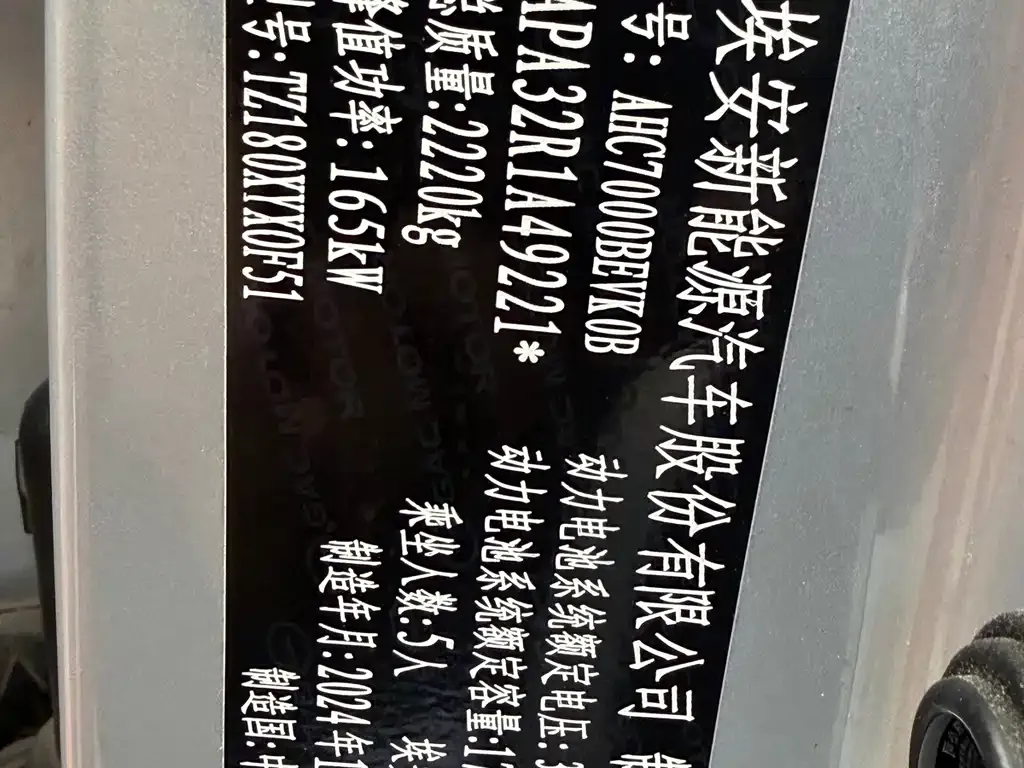 埃安新能源汽车股份有限公司
号: AHC7000BEVK0B 动力电池系统额定电压:3
MPA32R1A49221* 动力电池系统额定容量:17
总质量:2220kg 乘坐人数:5人 埃
峰值功率:165kW 制造年月:2024年1
号:TZ180XYX0F51 制造国:中
GAC MOTOR